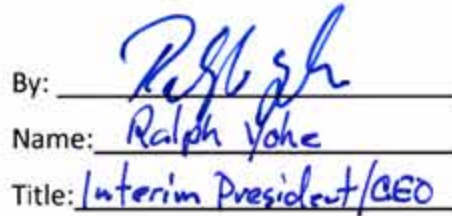 By:
Name: Ralph Yohe
Title: Interim President/CEO